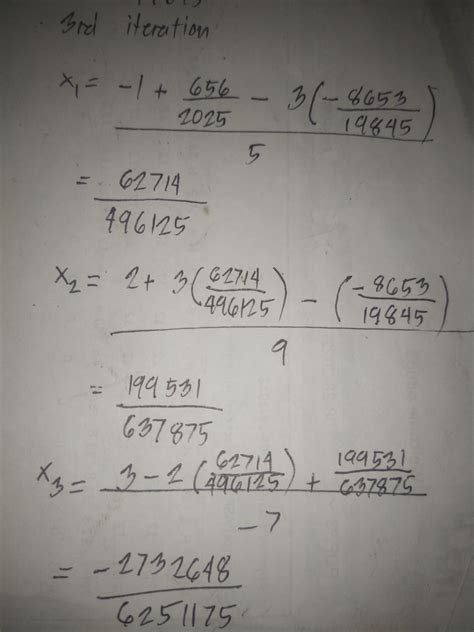 3rd iteration
x₁ = -1 + 656/2025 - 3(-8653/19845)
5
= 62714/496125
x₂ = 2 + 3(62714/496125) - (-8653/19845)
9
= 199531/637875
x₃ = 3 - 2(62714/496125) + 199531/637875
-7
= -2732648/6251175